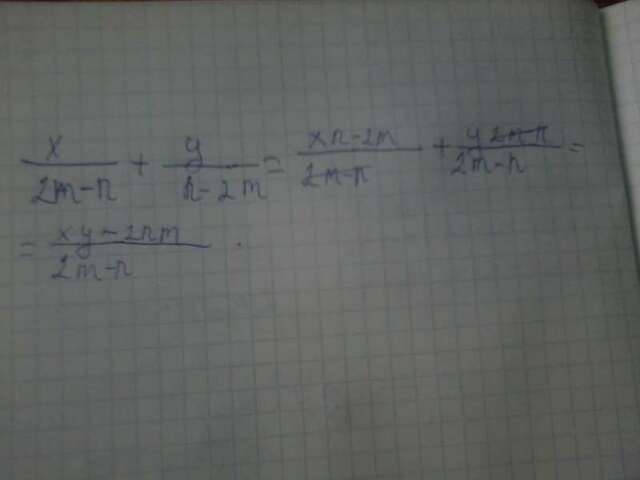 x/(2m-n) + y/(n-2m) = xn-2m/(2m-n) + y2m-n/(2m-n) =
= xy-2nm/(2m-n) .